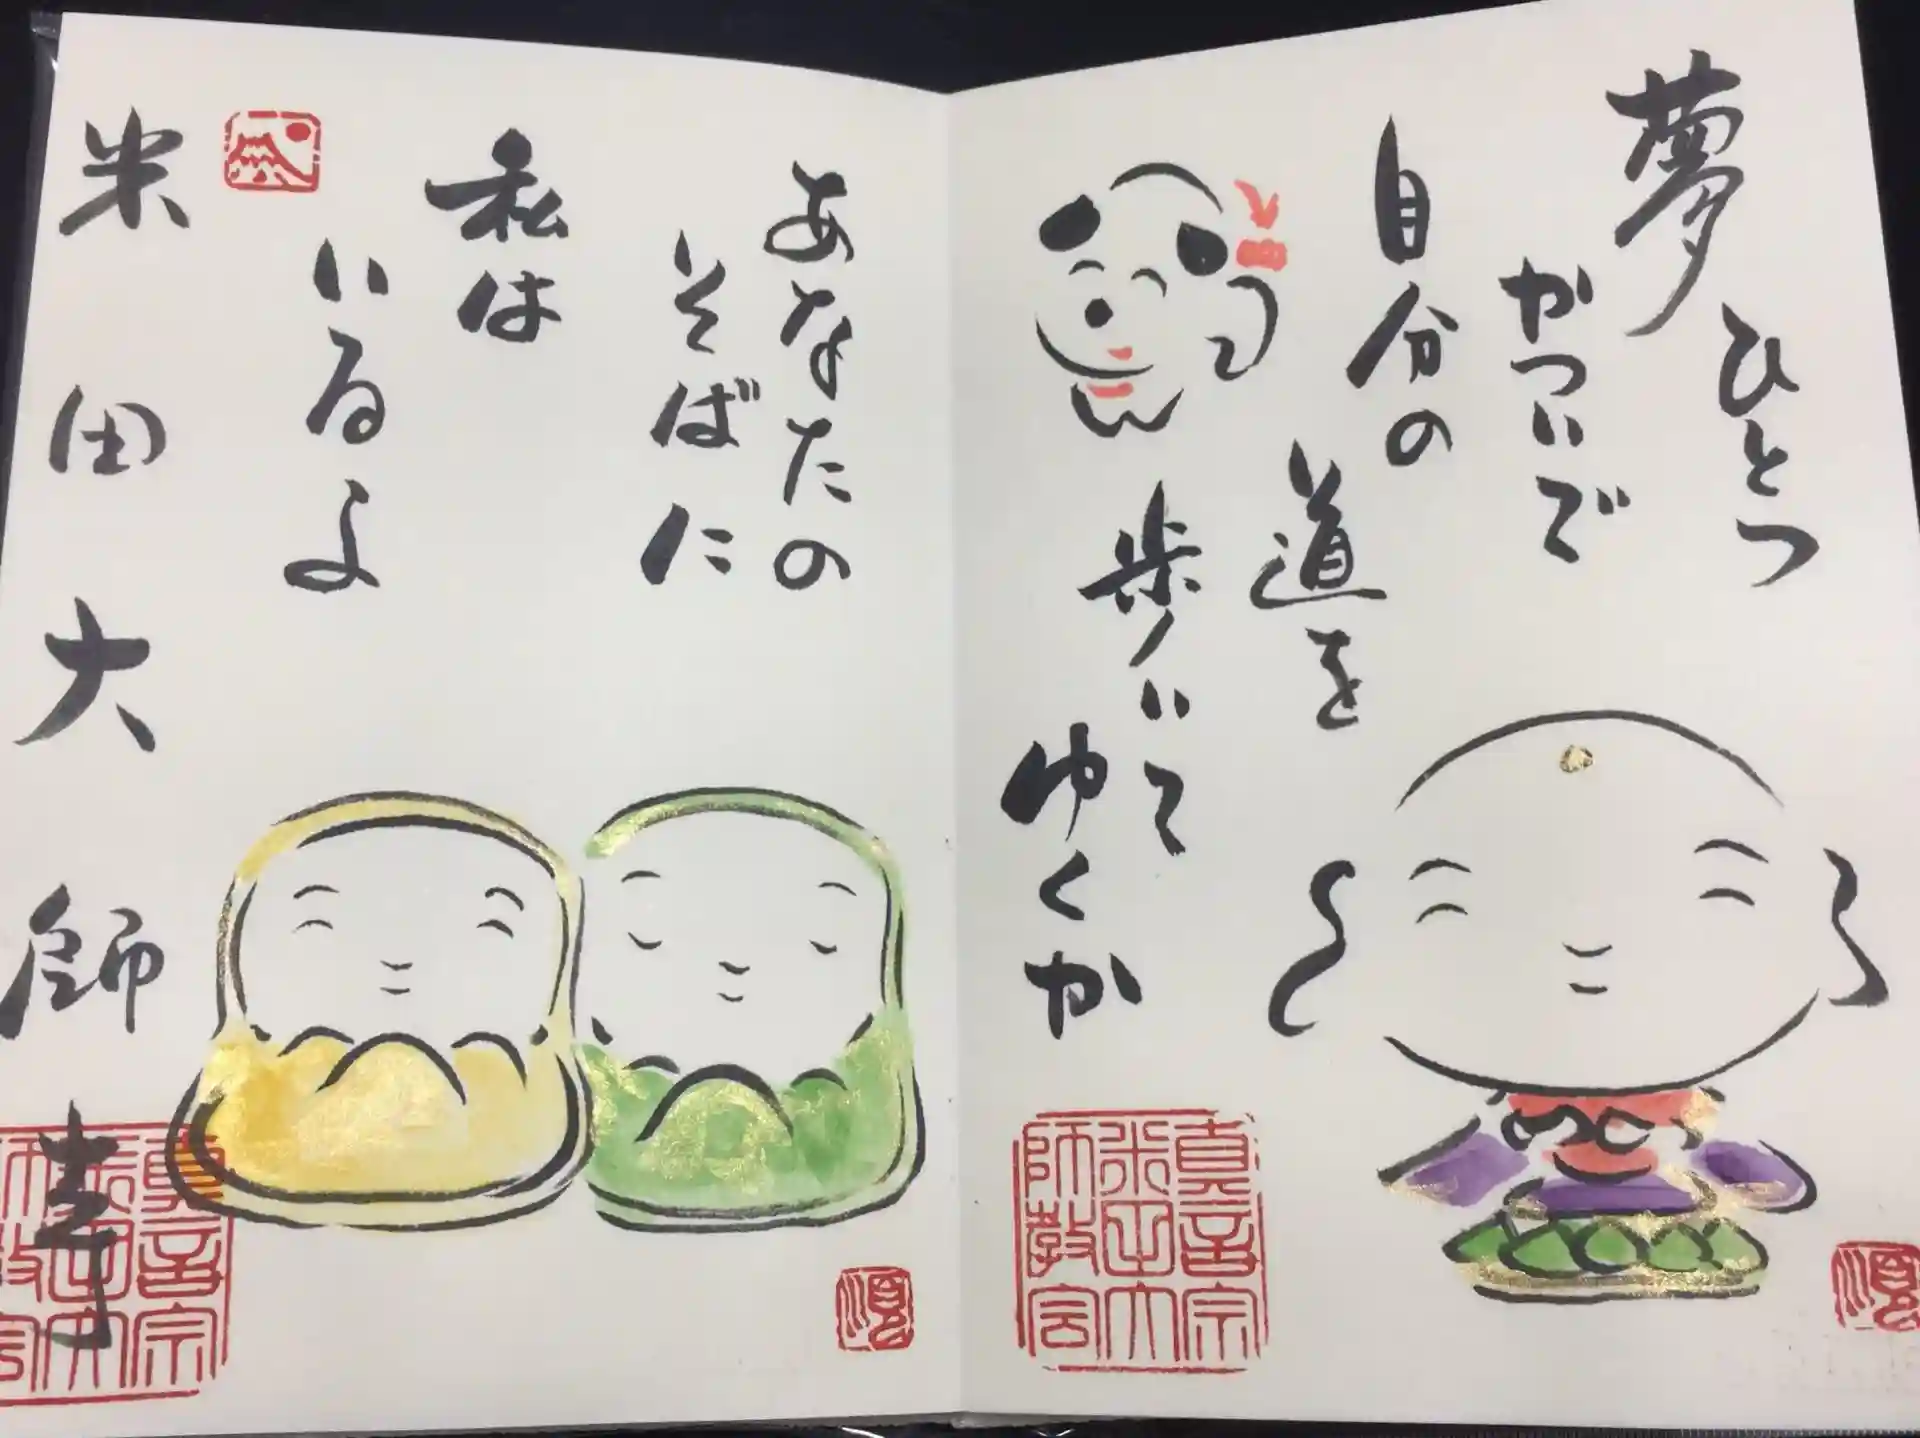 夢
ひとつ
かついで
自分の
道を
歩いて
ゆくか
真言宗
米田大
師教会
あなたの
そばに
私は
いるよ
米田大師
真言宗
米田大
師教会